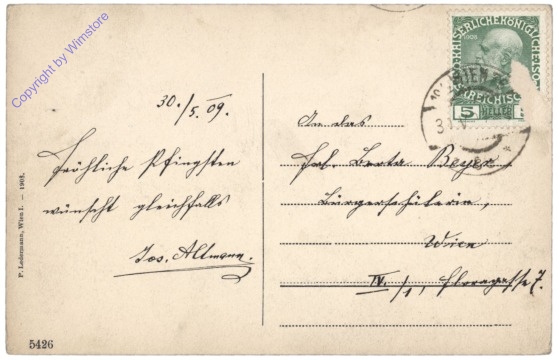 Copyright by Wimstore
30./5.09.
Fröhliche Pfingsten
wünscht gleichfalls
Jos. Altmann.
P. Ledermann, Wien I. — 1908.
5426
KAISERLICHE KÖNIGLICHE
1908
5 HELLER
WIEN
An das
Frl. Berta Beyer
Bürgerschülerin,
Wien
IV./1, Floragasse 7.